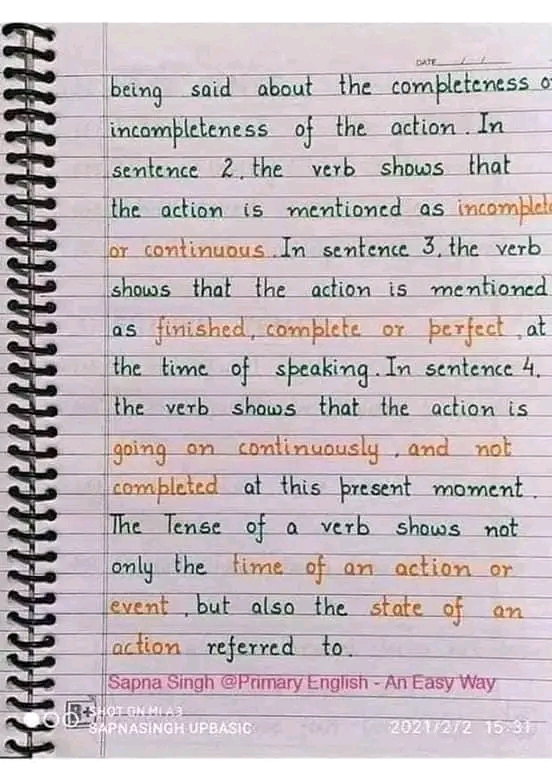 DATE / /
being said about the completeness o
incompleteness of the action. In
sentence 2, the verb shows that
the action is mentioned as incomplete
or continuous. In sentence 3, the verb
shows that the action is mentioned
as finished, complete or perfect, at
the time of speaking. In sentence 4,
the verb shows that the action is
going on continuously, and not
completed at this present moment.
The Tense of a verb shows not
only the time of an action or
event, but also the state of an
action referred to.
Sapna Singh @Primary English - An Easy Way
SHOT ON MI A3
SAPNASINGH UPBASIC
2021/2/2 15:31